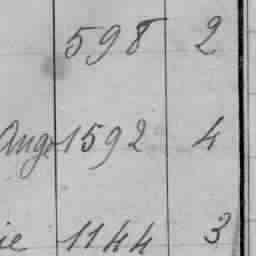 598 2
Ange 1592 4
ie 1144 3